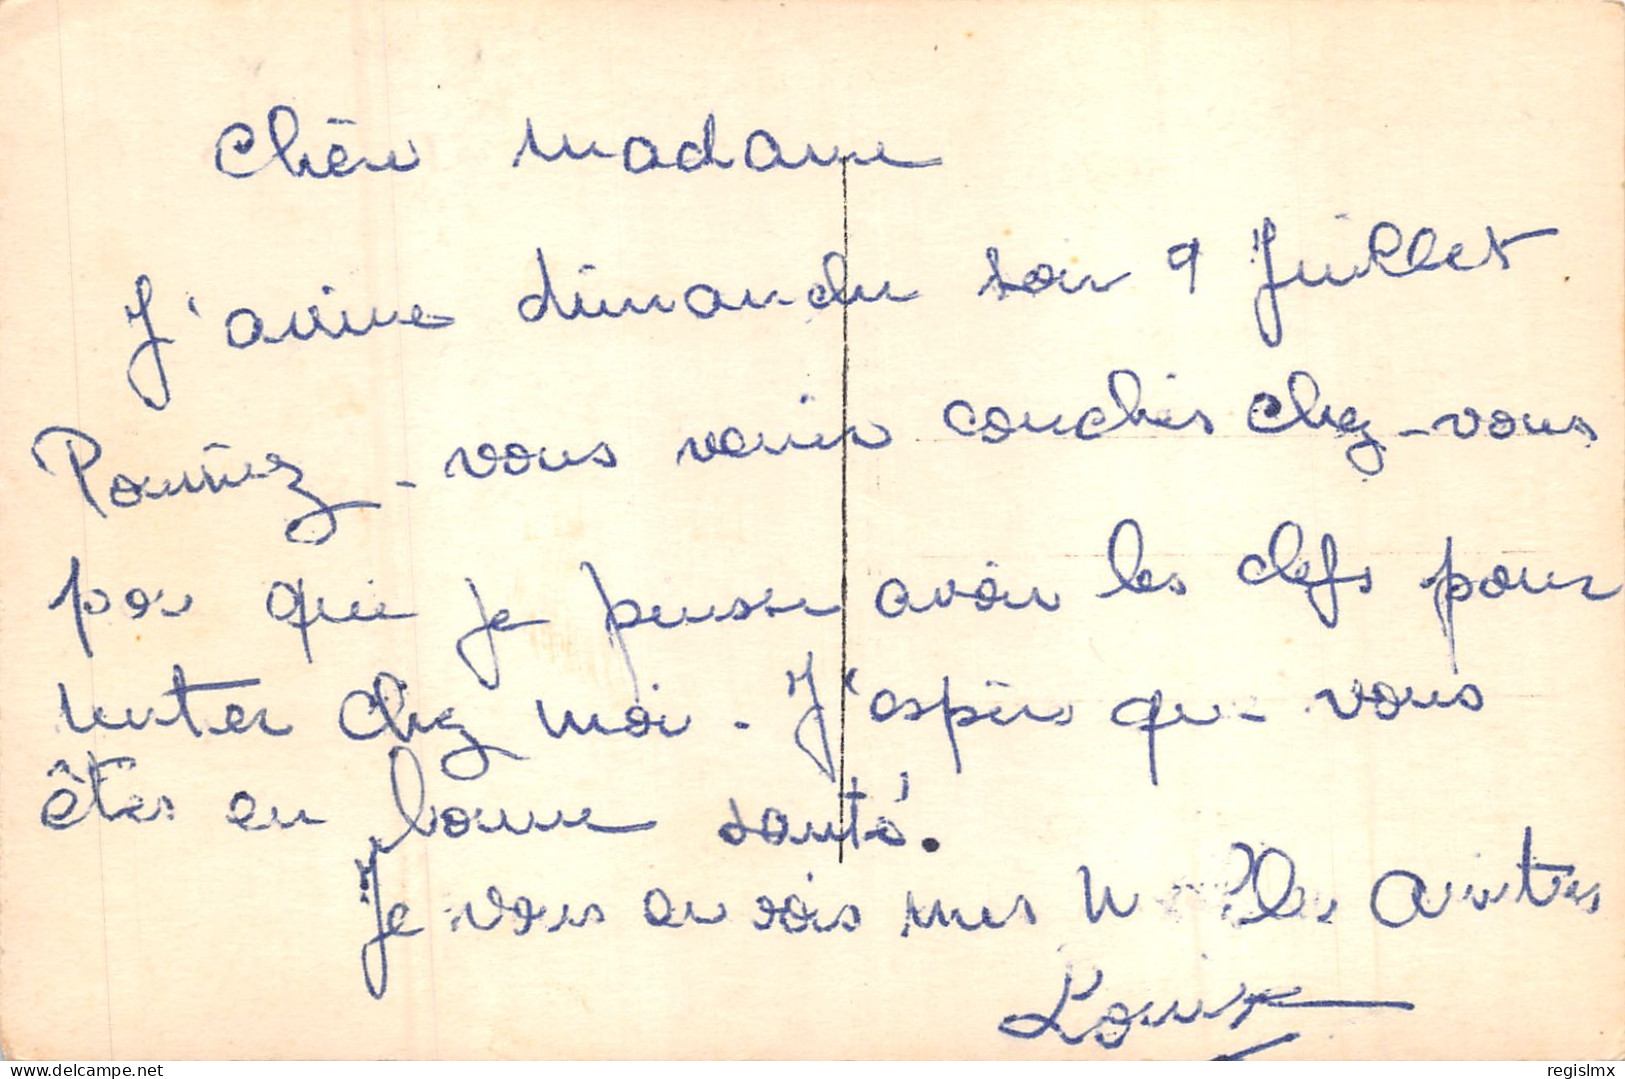 Chère madame
J'arrive dimanche soir 9 Juillet
Pourriez-vous venir coucher chez-vous
pour que je puisse avoir les clefs pour
rentrer chez moi. J'espère que vous
êtes en bonne santé.
Je vous envois mes autres
Louix
delcampe.net
regislmx